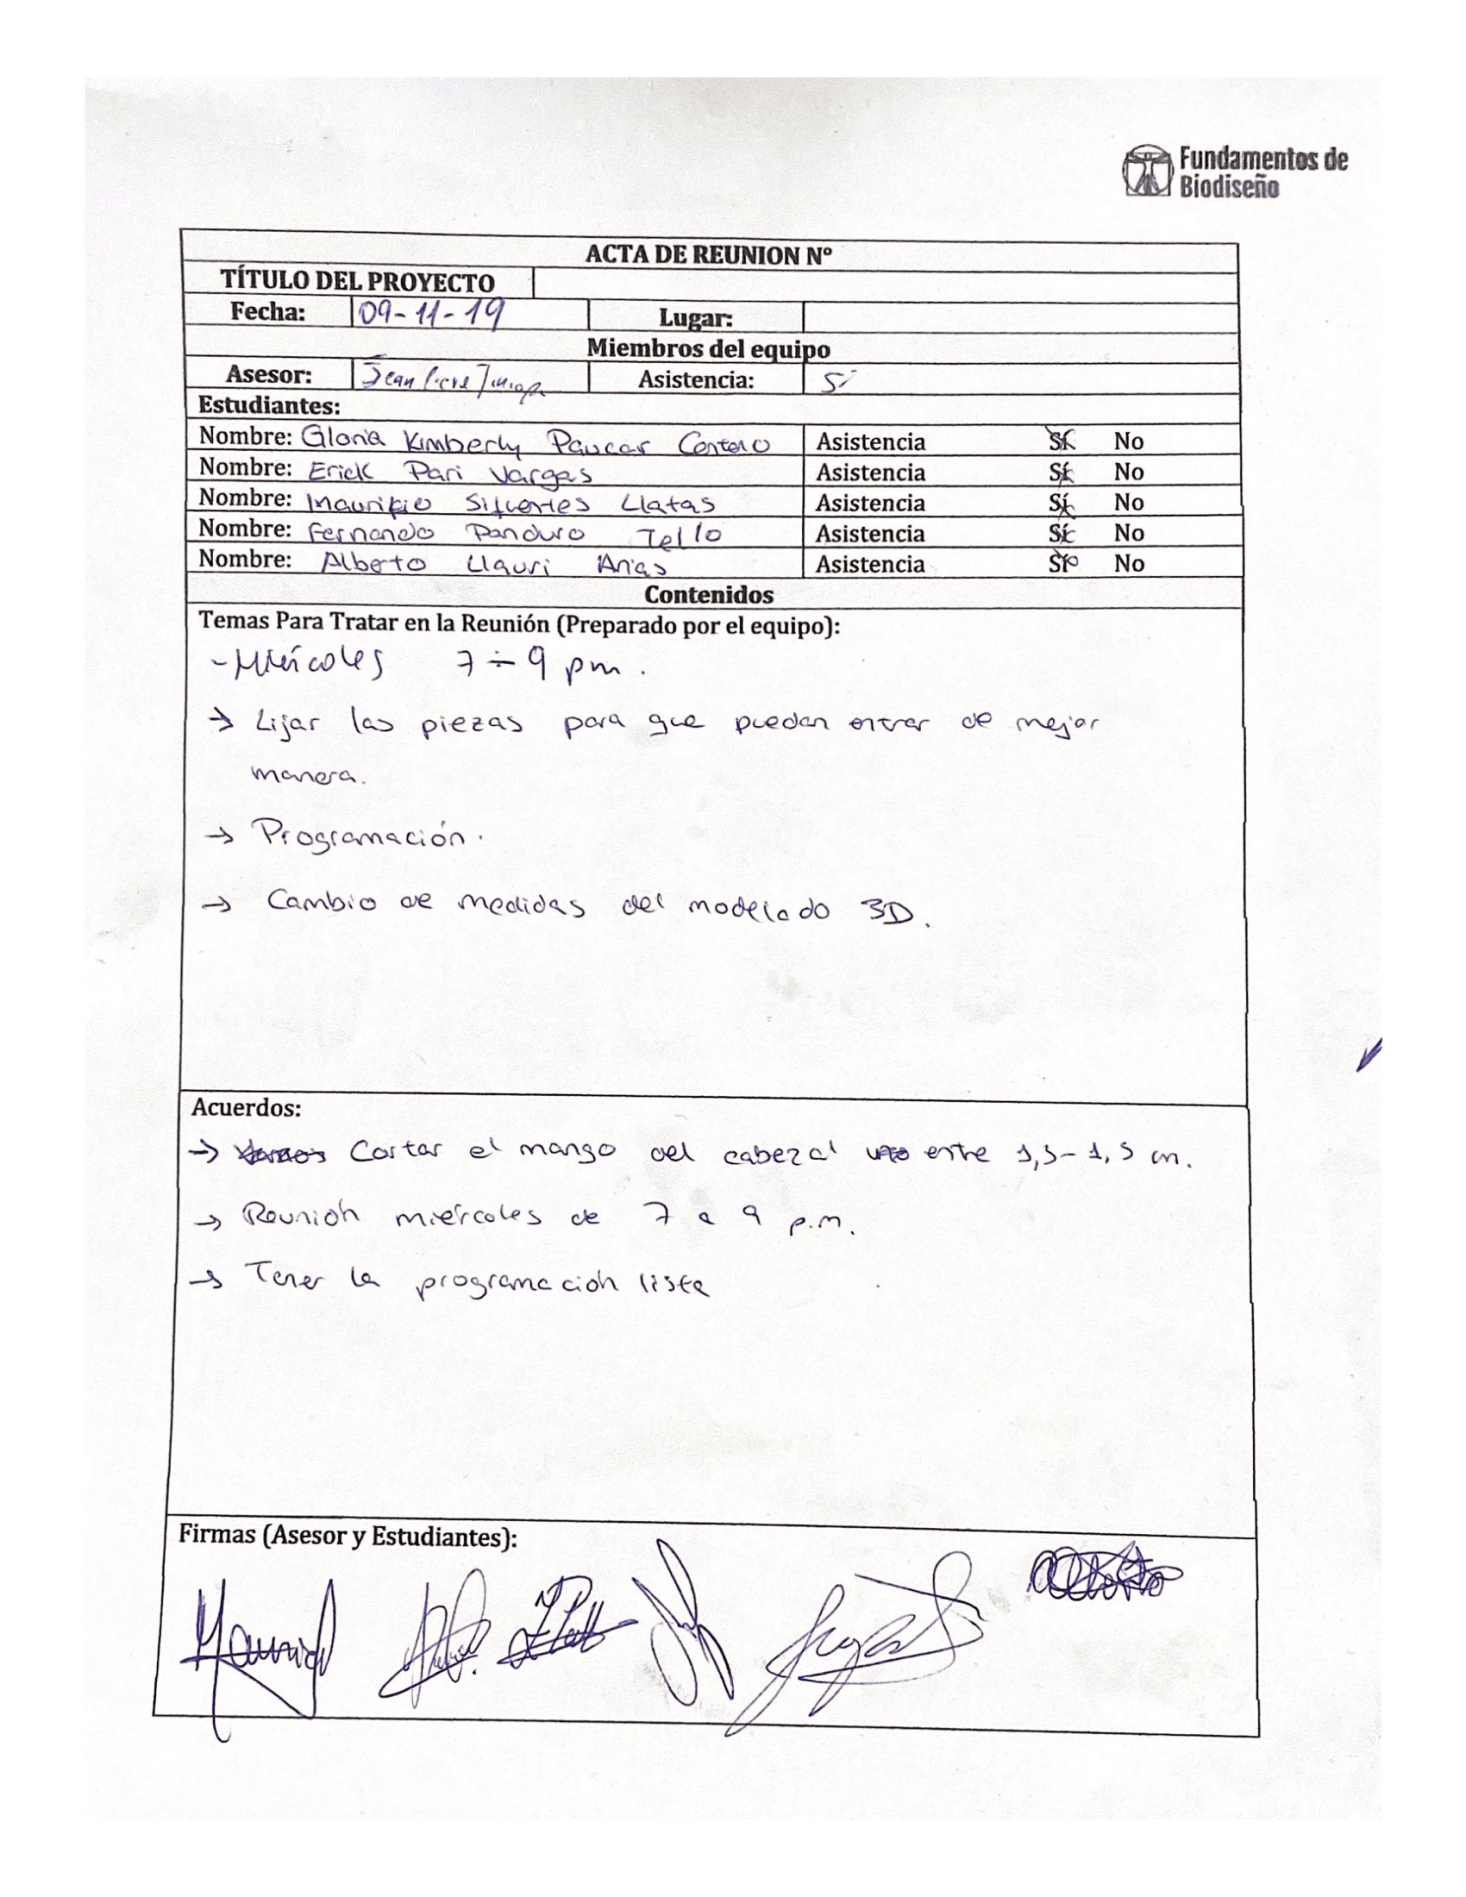 Fundamentos de
Biodiseño
ACTA DE REUNION Nº
TÍTULO DEL PROYECTO
Fecha: 09-11-19 Lugar:
Miembros del equipo
Asesor: Jean Asistencia: Si
Estudiantes:
Nombre: Gloria Kimberly Paucar Centeno Asistencia Sí No
Nombre: Erick Pari Vargas Asistencia Sí No
Nombre: Mauricio Sifuentes Llatas Asistencia Sí No
Nombre: Fernando Panduro Tello Asistencia Sí No
Nombre: Alberto Llauri Arias Asistencia Sí No
Contenidos
Temas Para Tratar en la Reunión (Preparado por el equipo):
- Miércoles 7 - 9 pm.
→ Lijar las piezas para que puedan entrar de mejor
manera.
→ Programación.
→ Cambio de medidas del modelado 3D.
Acuerdos:
→ Cortar el mango del cabezal entre 1,3 - 1,5 cm.
→ Reunión miércoles de 7 a 9 p.m.
→ Tener la programación lista
Firmas (Asesor y Estudiantes):